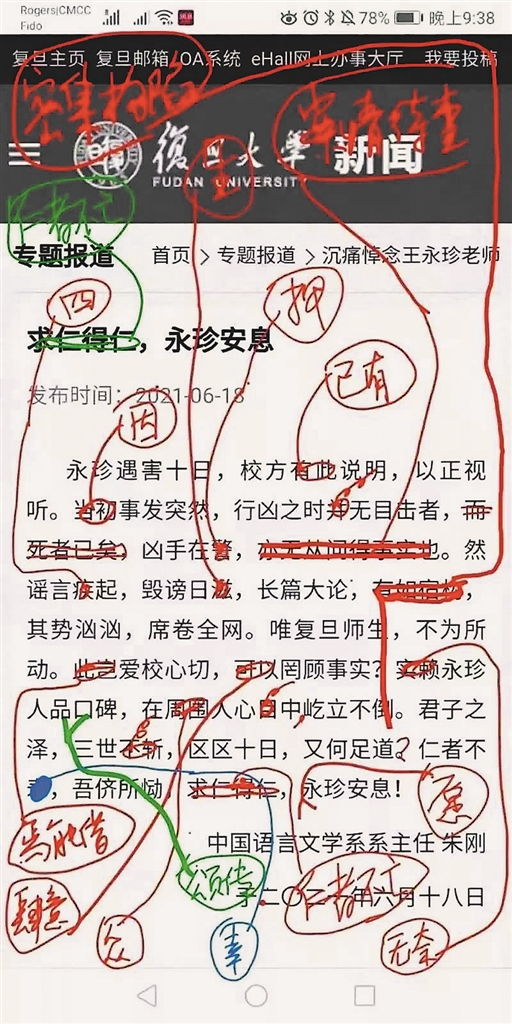 Rogers|CMCC
Fido
78% 晚上9:38
复旦主页 复旦邮箱 OA系统 eHall网上办事大厅 我要投稿
密集构陷
案情待查
復旦大學 新闻
FUDAN UNIVERSITY
专题报道 首页 > 专题报道 > 沉痛悼念王永珍老师
四
押
求仁得仁，永珍安息
已有
发布时间：2021-06-18
因
永珍遇害十日，校方有此说明，以正视
听。当初事发突然，行凶之时并无目击者，而
死者已矣，凶手在警，亦无从问得事实也。然
谣言疾起，毁谤日滋，长篇大论，有如宿构，
其势汹汹，席卷全网。唯复旦师生，不为所
动。此岂爱校心切，可以罔顾事实？实赖永珍
人品口碑，在周围人心目中屹立不倒。君子之
泽，三世不斩，区区十日，又何足道？仁者不
寿，吾侪所恸，求仁得仁，永珍安息！
焉能借
中国语言文学系系主任 朱刚
颂传
肆意
二〇二一年六月十八日
众
无奈